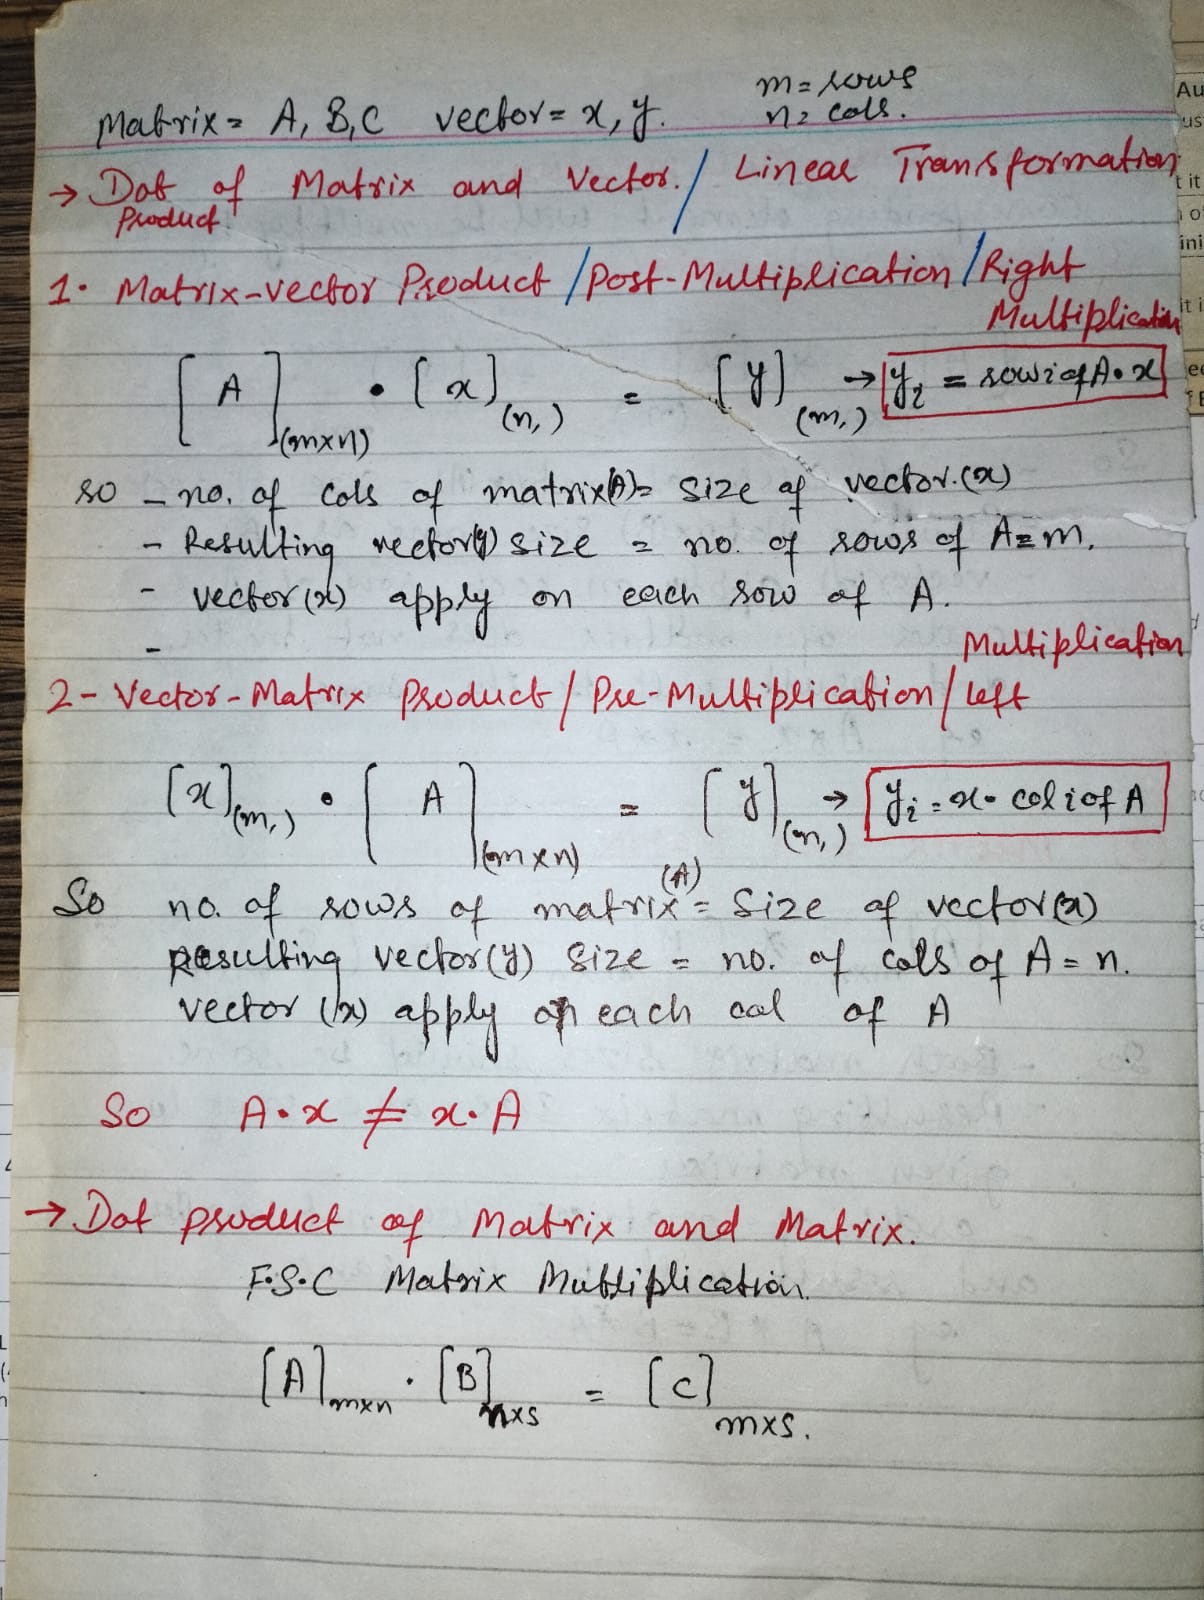 m = rows
Matrix = A, B, C vector = x, y. n = cols.
→ Dot of Matrix and Vector. / Linear Transformation
Product
1. Matrix-vector Product / Post-Multiplication / Right
Multiplication
[A](m×n) • [x](n,) = [y](m,) → yi = row i of A • x
so - no. of cols of matrix(A) = size of vector.(x)
- Resulting vector(y) size = no. of rows of A = m.
- vector (x) apply on each row of A.
-
Multiplication
2- Vector-Matrix Product / Pre-Multiplication / left
[x](m,) • [A](m×n) = [y](n,) → yi = x • col i of A
So no. of rows of matrix (A) = size of vector(x)
Resulting vector(y) size = no. of cols of A = n.
vector (x) apply on each col of A
So A • x ≠ x • A
→ Dot product of Matrix and Matrix.
F.S.C Matrix Multiplication.
[A]m×n . [B]n×s = [C]m×s.